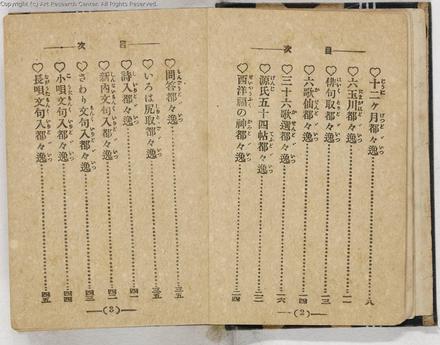 (c) Art Research Center. All Rights Reserved.
目次
♡十二ヶ月都々逸……八
♡六玉川都々逸……一一
♡俳句取都々逸……一三
♡六歌仙都々逸……一四
♡三十六歌選都々逸……一六
♡源氏五十四帖都々逸……二二
♡西洋福の神都々逸……三四
(2)
目次
♡問答都々逸……三五
♡いろは尻取都々逸……三五
♡詩入都々逸……四一
♡新内文句入都々逸……四二
♡さわり文句入都々逸……四三
♡小唄文句入都々逸……四四
♡長唄文句入都々逸……四五
(3)